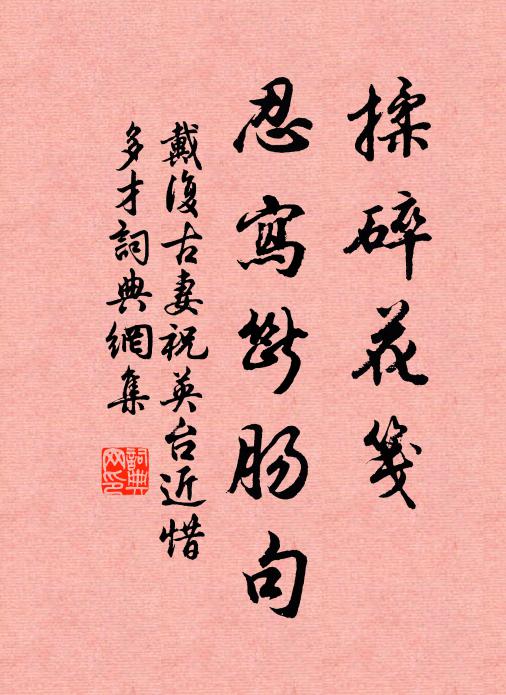 揉碎花箋
忍寫斷腸句
戴復古妻祝英台近惜
多才詞典網集
詞典
网印